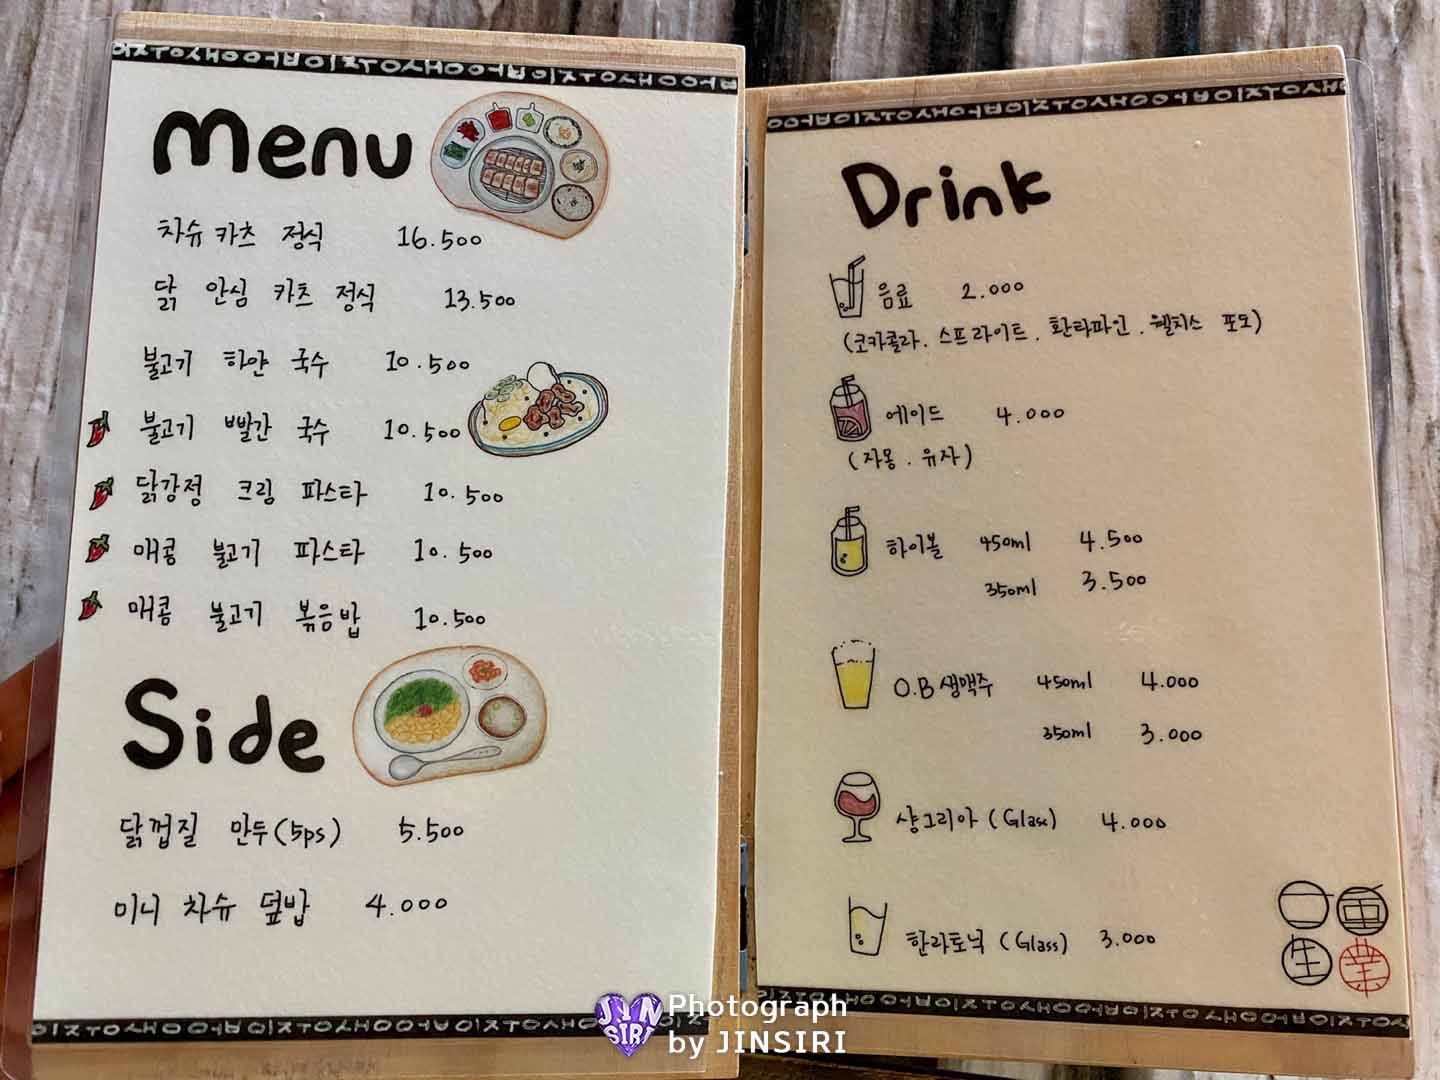 Menu
차슈 카츠 정식 16.500
닭 안심 카츠 정식 13.500
불고기 하얀 국수 10.500
불고기 빨간 국수 10.500
닭강정 크림 파스타 10.500
매콤 불고기 파스타 10.500
매콤 불고기 볶음밥 10.500
Side
닭껍질 만두(5ps) 5.500
미니 차슈 덮밥 4.000
Drink
음료 2.000
(코카콜라. 스프라이트. 환타파인. 웰치스 포도)
에이드 4.000
(자몽. 유자)
하이볼 450ml 4.500
350ml 3.500
O.B생맥주 450ml 4.000
350ml 3.000
샹그리아 (Glass) 4.000
한라토닉 (Glass) 3.000
Photograph
by JINSIRI
JIN
SIRI